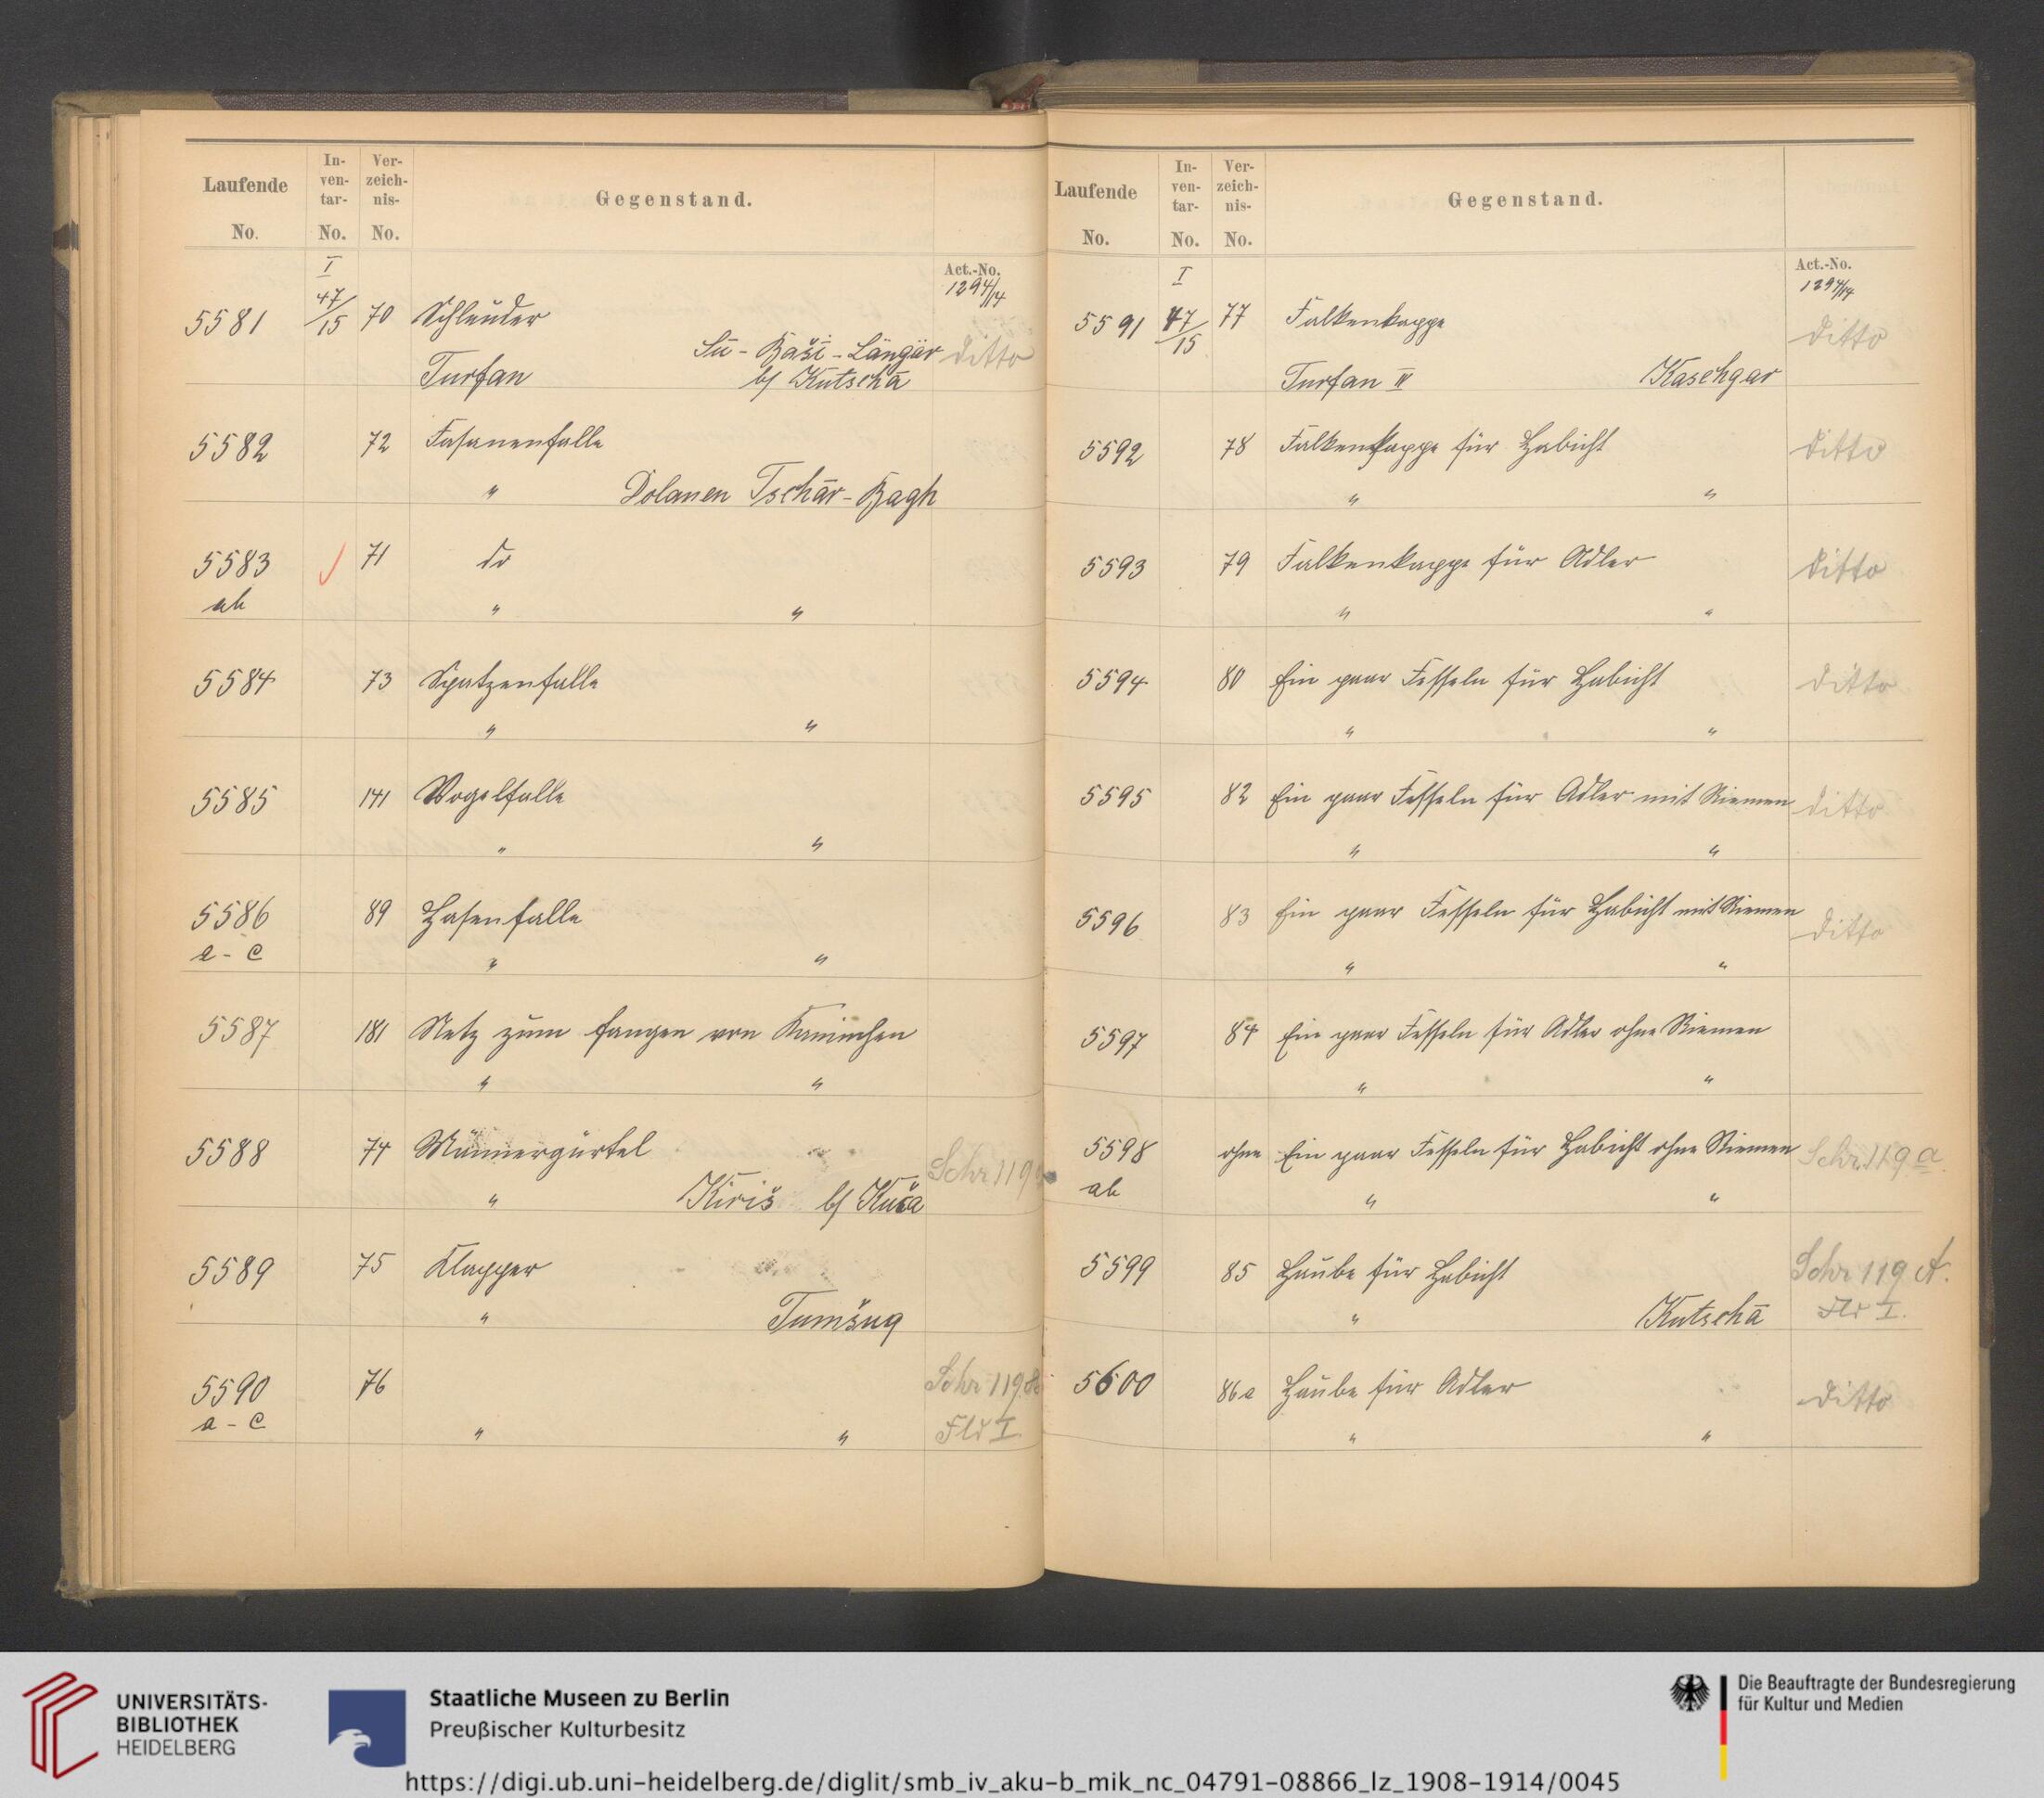 Laufende No.
In-ven-tar-No.
Ver-zeich-nis-No.
Gegenstand.
I
Act.-No.
1294/14
5581 47/15 70 Schleuder
Sū-Baši-Längär ditto
Turfan b/ Kutschā
5582 72 Fasanenfalle
" Dolanen Tschār-Bagh
5583 71 do
ab " "
5584 73 Spatzenfalle
" "
5585 141 Vogelfalle
" "
5586 89 Hasenfalle
a-c " "
5587 181 Netz zum fangen von Kaninchen
" "
5588 74 Männergürtel
Schr 119
" Kiriš b/ Kuča
5589 75 Klapper
" Tumšuq
5590 76 Schr 119
a-c " " Fld I.
Laufende No.
In-ven-tar-No.
Ver-zeich-nis-No.
Gegenstand.
I
Act.-No.
1294/14
5591 47/15 77 Falkenkappe ditto
Turfan IV Kaschgar
5592 78 Falkenkappe für Habicht ditto
" "
5593 79 Falkenkappe für Adler ditto
" "
5594 80 Ein paar Fesseln für Habicht ditto
" "
5595 82 Ein paar Fesseln für Adler mit Riemen ditto
" "
5596 83 Ein paar Fesseln für Habicht mit Riemen ditto
" "
5597 84 Ein paar Fesseln für Adler ohne Riemen
" "
5598 ohne Ein paar Fesseln für Habicht ohne Riemen Schr. 119 a.
ab " "
5599 85 Haube für Habicht Schr 119 A.
" Kutschā Fld I.
5600 86a Haube für Adler ditto
" "
UNIVERSITÄTS-
BIBLIOTHEK
HEIDELBERG
Staatliche Museen zu Berlin
Preußischer Kulturbesitz
Die Beauftragte der Bundesregierung
für Kultur und Medien
https://digi.ub.uni-heidelberg.de/diglit/smb_iv_aku-b_mik_nc_04791-08866_lz_1908-1914/0045